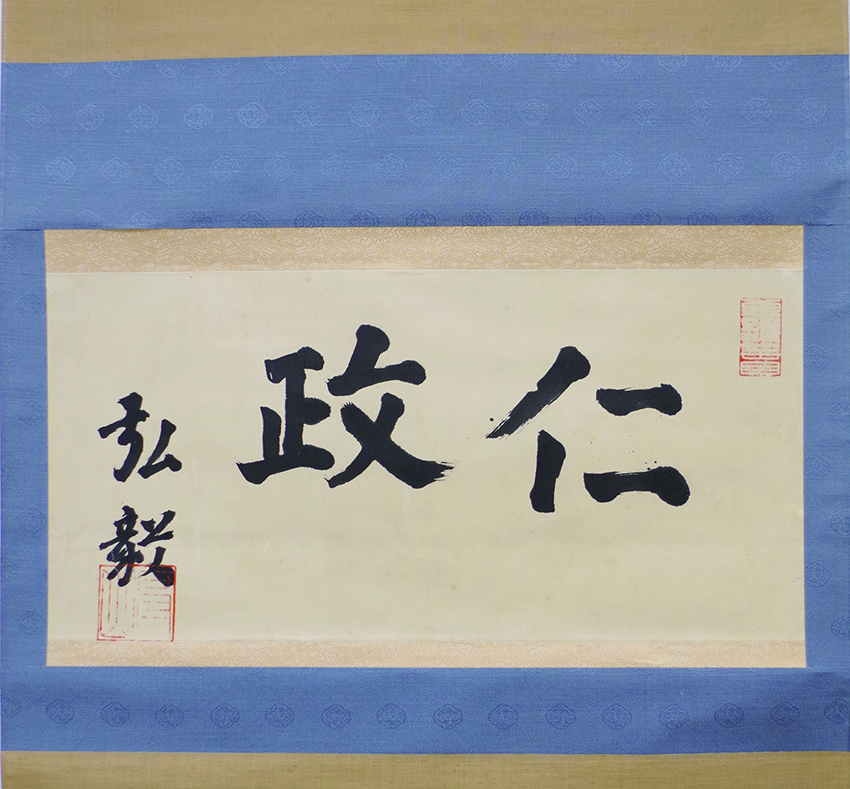 仁政
弘毅